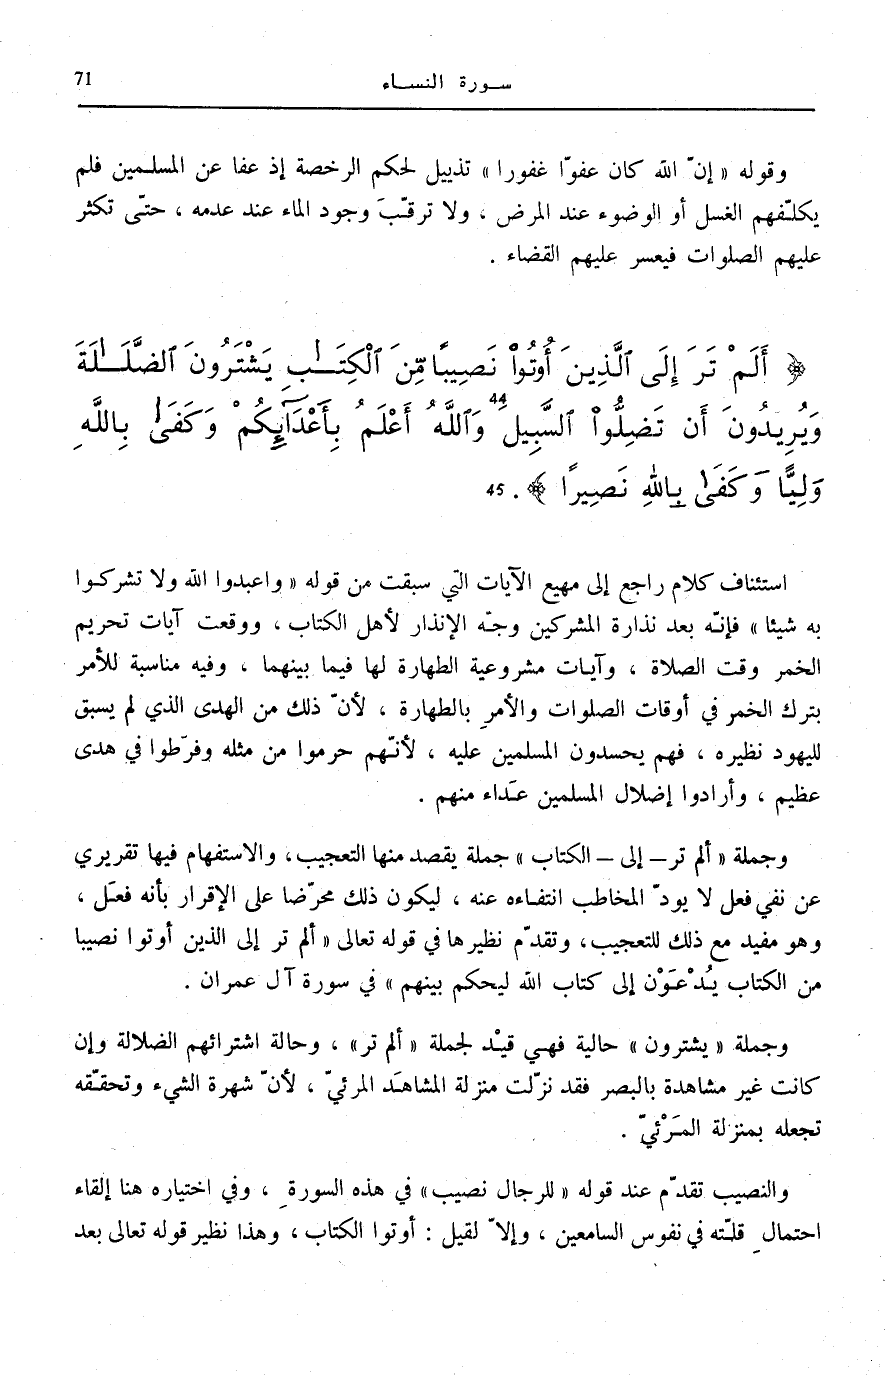 سورة النساء 71
وقوله « إنّ الله كان عفوّا غفورا » تذييل لحكم الرخصة إذ عفا عن المسلمين فلم
يكلّفهم الغسل أو الوضوء عند المرض ، ولا ترقّبَ وجود الماء عند عدمه ، حتّى تكثر
عليهم الصلوات فيعسر عليهم القضاء .
﴿ أَلَمْ تَرَ إِلَى ٱلَّذِينَ أُوتُواْ نَصِيبًا مِّنَ ٱلْكِتَـٰبِ يَشْتَرُونَ ٱلضَّلَـٰلَةَ
وَيُرِيدُونَ أَن تَضِلُّواْ ٱلسَّبِيلَ 44 وَٱللَّهُ أَعْلَمُ بِأَعْدَآئِكُمْ وَكَفَىٰ بِٱللَّهِ
وَلِيًّا وَكَفَىٰ بِٱللَّهِ نَصِيرًا ﴾ . 45
استئناف كلام راجع إلى مهيع الآيات التي سبقت من قوله « واعبدوا الله ولا تشركوا
به شيئا » فإنّه بعد نذارة المشركين وجّه الإنذار لأهل الكتاب ، ووقعت آيات تحريم
الخمر وقت الصلاة ، وآيات مشروعية الطهارة لها فيما بينهما ، وفيه مناسبة للأمر
بترك الخمر في أوقات الصلوات والأمرِ بالطهارة ، لأنّ ذلك من الهدى الذي لم يسبق
لليهود نظيره ، فهم يحسدون المسلمين عليه ، لأنّهم حرموا من مثله وفرّطوا في هدى
عظيم ، وأرادوا إضلال المسلمين عَداء منهم .
وجملة « ألم تر — إلى — الكتاب » جملة يقصد منها التعجيب ، والاستفهام فيها تقريري
عن نفي فعل لا يودّ المخاطب انتفاءه عنه ، ليكون ذلك محرّضا على الإقرار بأنه فعَل ،
وهو مفيد مع ذلك للتعجيب ، وتقدّم نظيرها في قوله تعالى « ألم تر إلى الذين أوتوا نصيبا
من الكتاب يُدْعَوْن إلى كتاب الله ليحكم بينهم » في سورة آل عمران .
وجملة « يشترون » حالية فهي قيْد لجملة « ألم تر » ، وحالة اشترائهم الضلالة وإن
كانت غير مشاهدة بالبصر فقد نزّلت منزلة المشاهَد المرئيّ ، لأنّ شهرة الشيء وتحقّقه
تجعله بمنزلة المَرْئيّ .
والنصيب تقدّم عند قوله « للرجال نصيب » في هذه السورةِ ، وفي اختياره هنا إلقاء
احتمالِ قلّته في نفوس السامعين ، وإلاّ لقيل : أوتوا الكتاب ، وهذا نظير قوله تعالى بعد